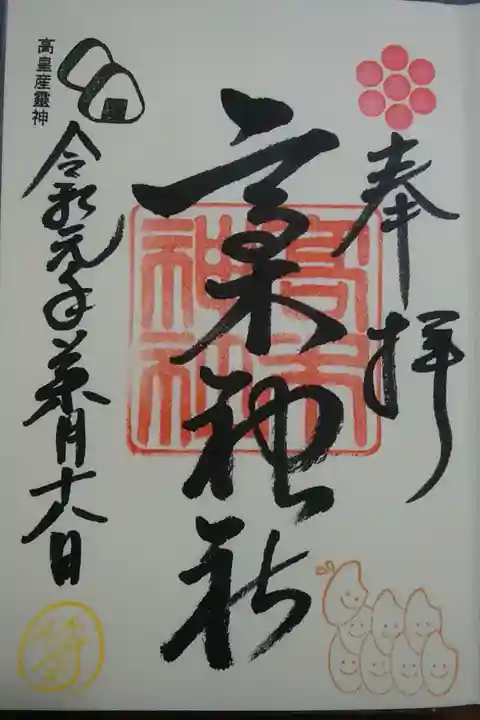 奉拝
高木神社
高木神社
高皇産靈神
令和元年葉月十八日